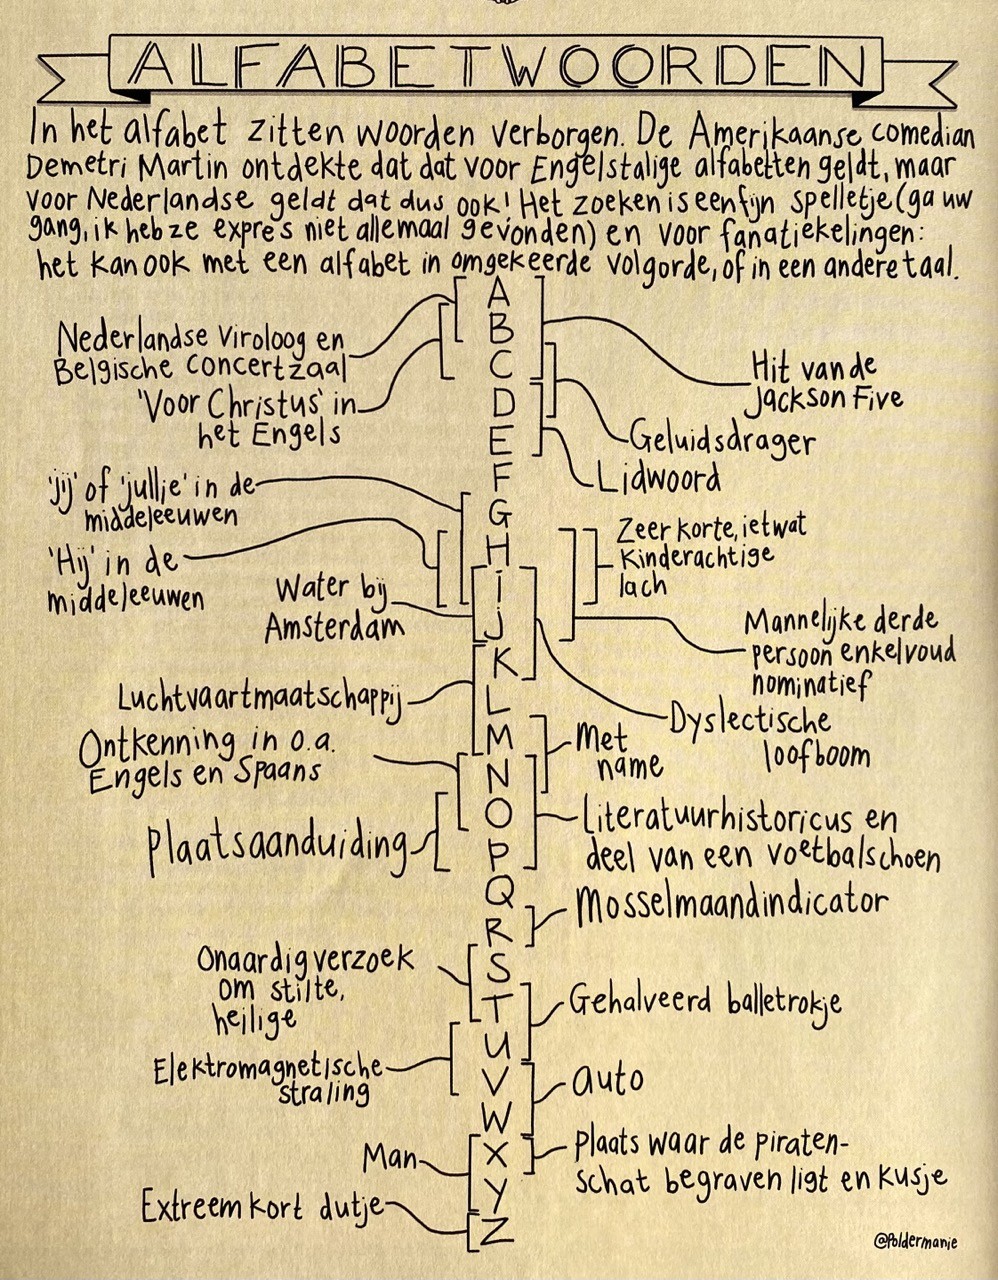 ALFABETWOORDEN
In het alfabet zitten woorden verborgen. De Amerikaanse comedian
Demetri Martin ontdekte dat dat voor Engelstalige alfabetten geldt, maar
voor Nederlandse geldt dat dus ook! Het zoeken is een fijn spelletje (ga uw
gang, ik heb ze expres niet allemaal gevonden) en voor fanatiekelingen:
het kan ook met een alfabet in omgekeerde volgorde, of in een andere taal.
A
B
C
D
E
F
G
H
i
j
K
L
M
N
O
P
Q
R
S
T
U
V
W
X
Y
Z
Nederlandse Viroloog en
Belgische concertzaal
'Voor Christus' in
het Engels
'jij' of 'jullie' in de
middeleeuwen
'Hij' in de
middeleeuwen
Water bij
Amsterdam
Luchtvaartmaatschappij
Ontkenning in o.a.
Engels en Spaans
Plaatsaanduiding
Onaardig verzoek
om stilte,
heilige
Elektromagnetische
straling
Man
Extreem kort dutje
Hit van de
Jackson Five
Geluidsdrager
Lidwoord
Zeer korte, ietwat
kinderachtige
lach
Mannelijke derde
persoon enkelvoud
nominatief
Dyslectische
loofboom
Met
name
Literatuurhistoricus en
deel van een voetbalschoen
Mosselmaandindicator
Gehalveerd balletrokje
Auto
Plaats waar de piraten-
schat begraven ligt en kusje
@Poldermanie